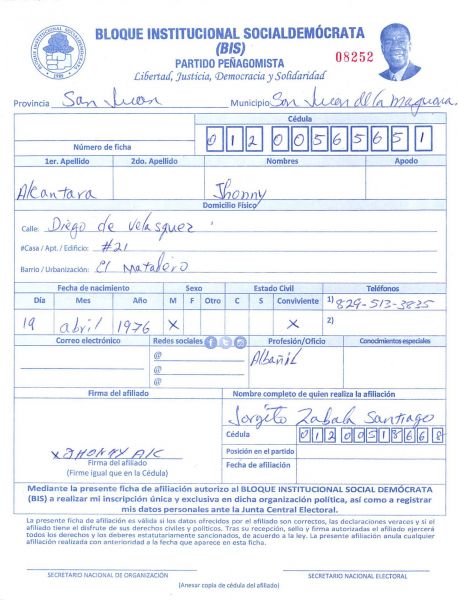 BLOQUE INSTITUCIONAL SOCIALDEMÓCRATA
(BIS)
PARTIDO PEÑAGOMISTA
Libertad, Justicia, Democracia y Solidaridad
08252
Provincia San Juan Municipio San Juan de la Maguana
Cédula
Número de ficha 01200565651
1er. Apellido 2do. Apellido Nombres Apodo
Alcantara Jhonny
Domicilio Físico
Calle: Diego de Velasquez
#Casa / Apt. / Edificio: #21
Barrio / Urbanización: El Matadero
Fecha de nacimiento Sexo Estado Civil Teléfonos
Día Mes Año M F Otro C S Conviviente 1) 829-513-3835
19 abril 1976 X X 2)
Correo electrónico Redes sociales Profesión/Oficio Conocimientos especiales
@ Albañil
@
@
Firma del afiliado Nombre completo de quien realiza la afiliación
Jorgito Zabala Santiago
Cédula 01200513668
X JHONNY AlC Posición en el partido
Firma del afiliado Fecha de afiliación
(Firme igual que en la Cédula)
Mediante la presente ficha de afiliación autorizo al BLOQUE INSTITUCIONAL SOCIAL DEMÓCRATA
(BIS) a realizar mi inscripción única y exclusiva en dicha organización política, así como a registrar
mis datos personales ante la Junta Central Electoral.
La presente ficha de afiliación es válida si los datos ofrecidos por el afiliado son correctos, las declaraciones veraces y si el
afiliado tiene el disfrute de sus derechos civiles y políticos. Tras su recepción, sello y firma autorizadas el afiliado ejercerá
todos los derechos y los deberes estatutariamente sancionados, de acuerdo a la ley. La presente afiliación anula cualquier
afiliación realizada con anterioridad a la fecha que aparece en esta ficha.
SECRETARIO NACIONAL DE ORGANIZACIÓN SECRETARIO NACIONAL ELECTORAL
(Anexar copia de cédula del afiliado)